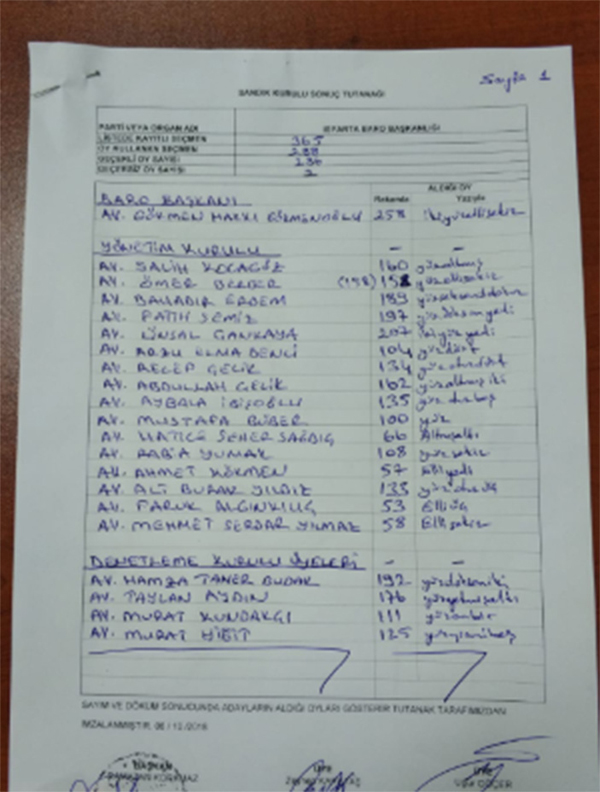 Sayfa 1
SANDIK KURULU SONUÇ TUTANAĞI
PARTİ VEYA ORGAN ADI ISPARTA BARO BAŞKANLIĞI
LİSTEDE KAYITLI SEÇMEN 365
OY KULLANAN SEÇMEN 288
GEÇERLİ OY SAYISI 286
GEÇERSİZ OY SAYISI 2
ALDIĞI OY
BARO BAŞKANI Rakamla Yazıyla
AV. GÖKMEN HAKKI GÖKMENOĞLU 258 ikiyüzellisekiz
YÖNETİM KURULU - -
AV. SALİH KOCAGÖZ 160 yüzaltmış
AV. ÖMER BERBER (158) 158 yüzellisekiz
AV. BAHADIR ERDEM 189 yüzseksendokuz
AV. FATİH SEMİZ 197 yüzdoksanyedi
AV. ÜNSAL ÇANKAYA 207 ikiyüzyedi
AV. ARZU ELMA DENLİ 104 yüzdört
AV. RECEP ÇELİK 134 yüzotuzdört
AV. ABDULLAH ÇELİK 162 yüzaltmışiki
AV. AYBALA İBİŞOĞLU 135 yüzotuzbeş
AV. MUSTAFA BÜBER 100 yüz
AV. HATİCE SEHER SAĞDIÇ 66 Altmışaltı
AV. RABİA YUMAK 108 yüzsekiz
AV. AHMET KÖKMEN 57 Elliyedi
AV. ALİ BURAK YILDIZ 133 yüzotuzüç
AV. FARUK ALGINKILIÇ 53 Elliüç
AV. MEHMET SERDAR YILMAZ 58 Ellisekiz
DENETLEME KURULU ÜYELERİ - -
AV. HAMZA TANER BUDAK 192 yüzdoksaniki
AV. TAYLAN AYDIN 176 yüzyetmişaltı
AV. MURAT KUNDAKÇI 111 yüzonbir
AV. MURAT YİĞİT 125 yüzyirmibeş
SAYIM VE DÖKÜM SONUCUNDA ADAYLARIN ALDIĞI OYLARI GÖSTERİR TUTANAK TARAFIMIZDAN
İMZALANMIŞTIR. 06 / 10 /2018
BAŞKAN ÜYE ÜYE
KORKMAZ